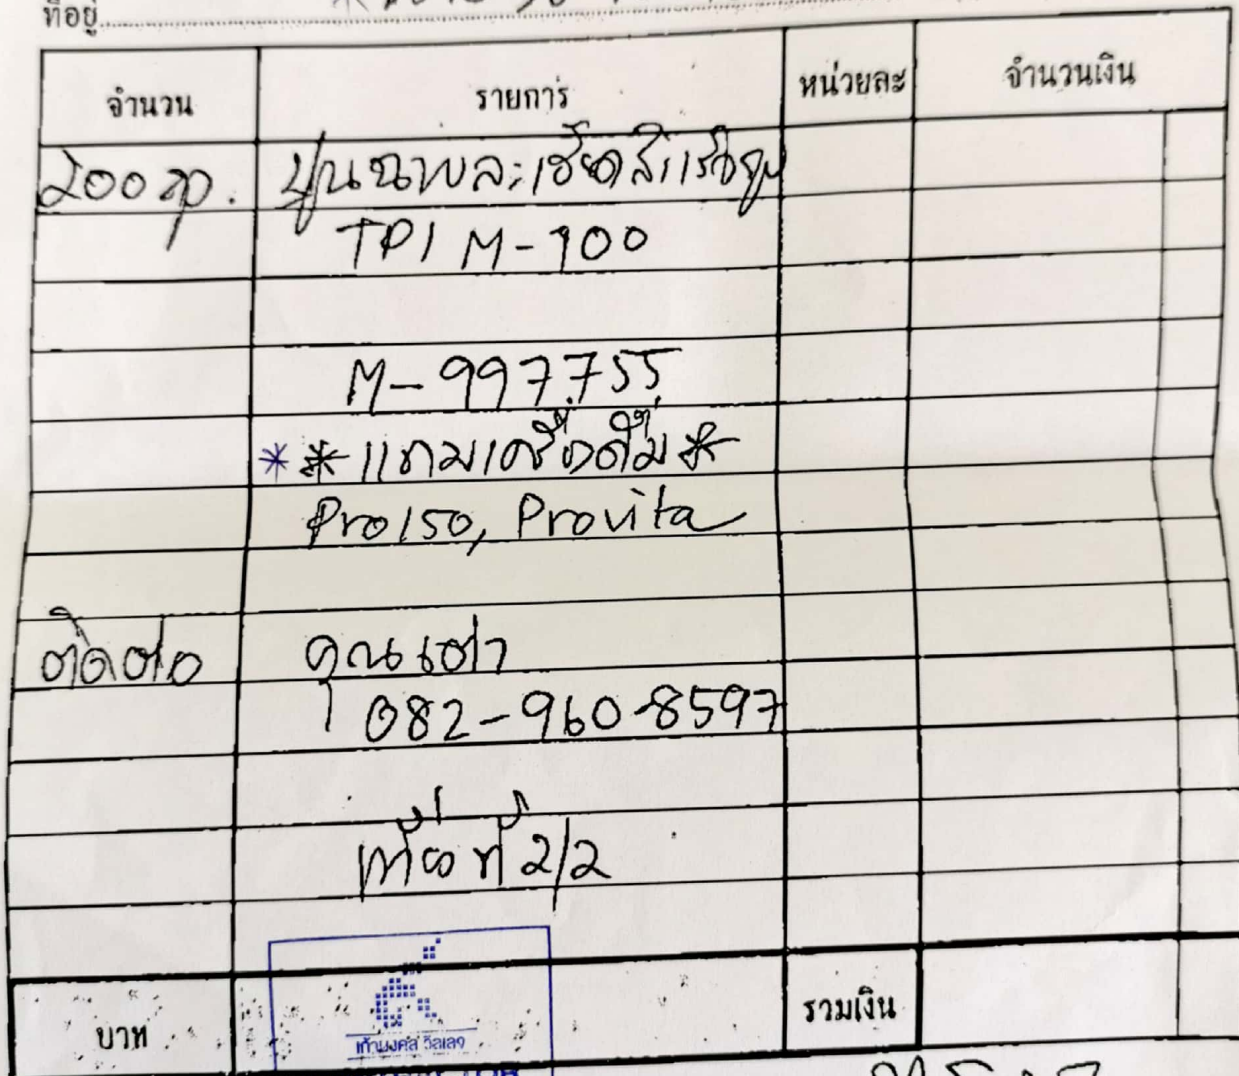 ที่อยู่
จำนวน รายการ หน่วยละ จำนวนเงิน
200 ลูก. ปูนฉาบละเอียดสำเร็จรูป
TPI M-100
M-997.755
**แถมเครื่องดื่ม*
Pro150, Provita
ติดต่อ คุณเต่า
082-960-8597
เที่ยวที่ 2/2
บาท รวมเงิน
เก้ามงคล วิลเลจ